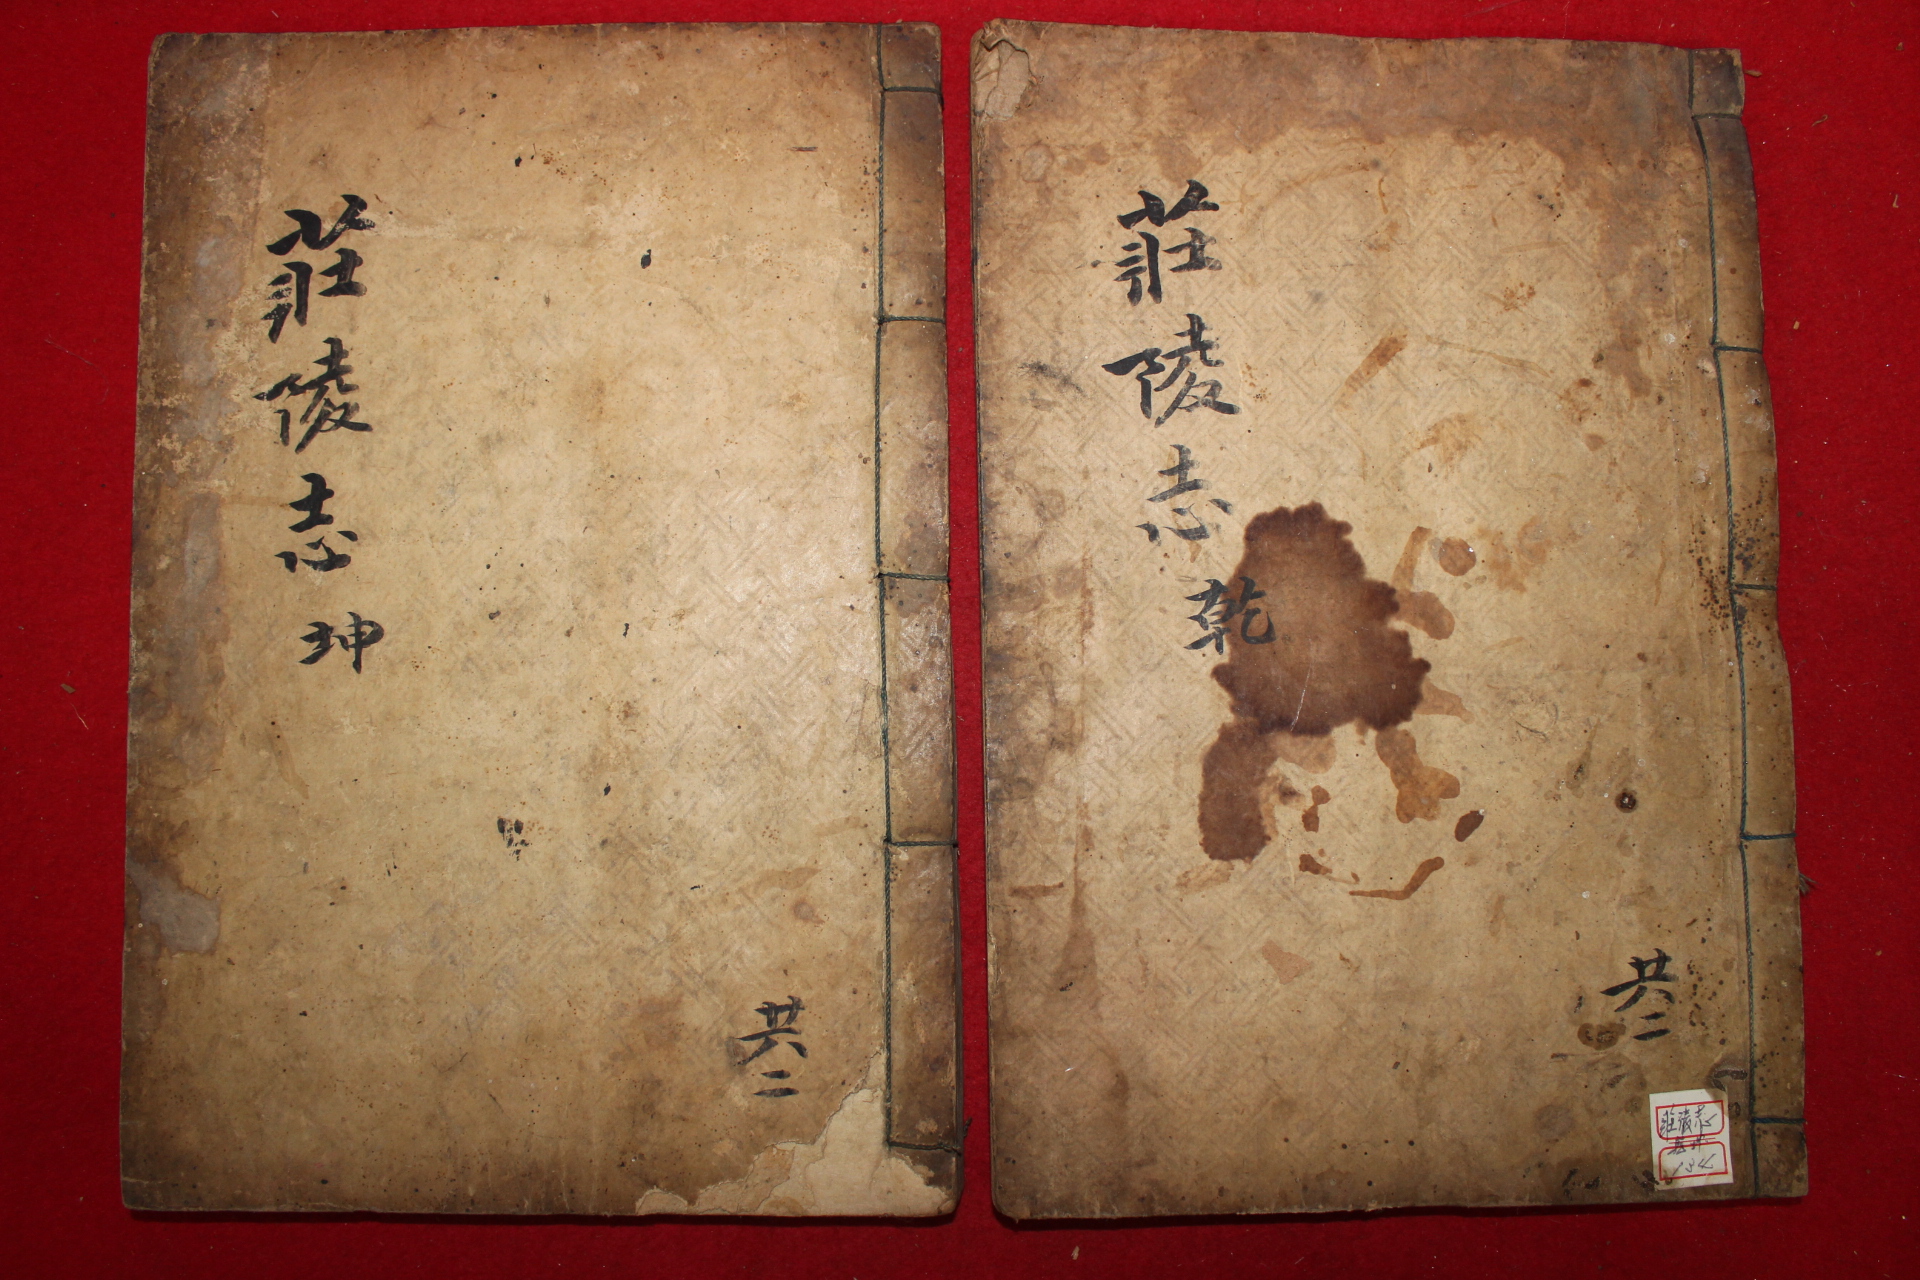 莊陵志 乾
共二
莊陵志
134
莊陵志 坤
共二